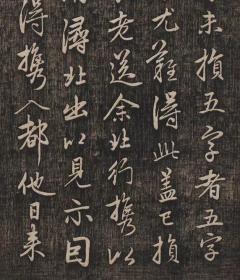 未損五字者五字
尤難得此蓋已損
老送余北行攜以
潯北出以見示因
得攜入都他日來